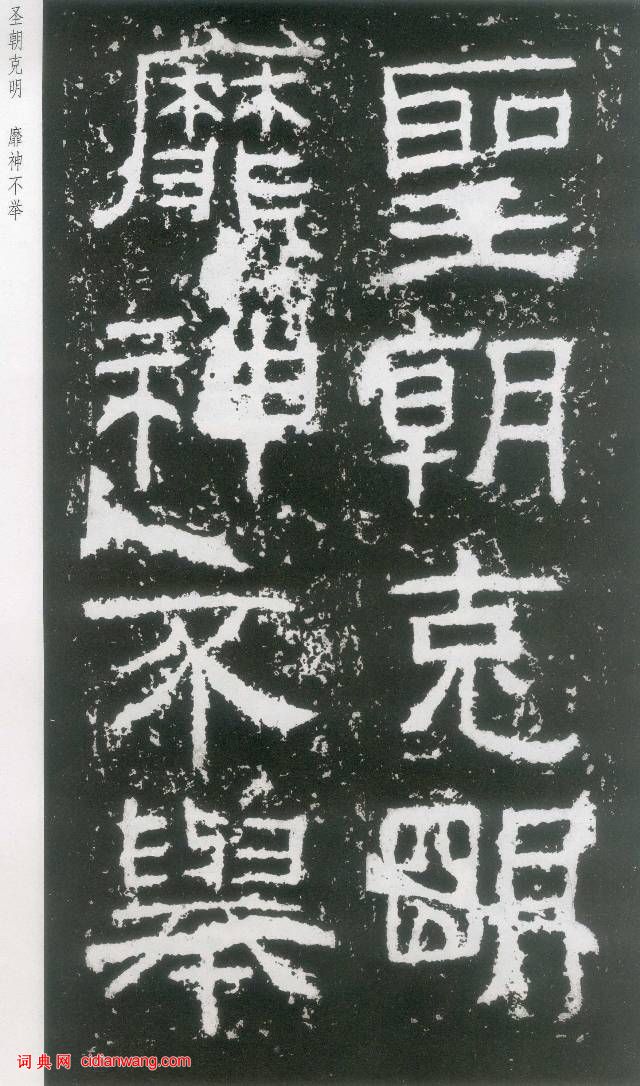 聖朝克明
靡神不舉
圣朝克明　靡神不举
词典网 cidianwang.com